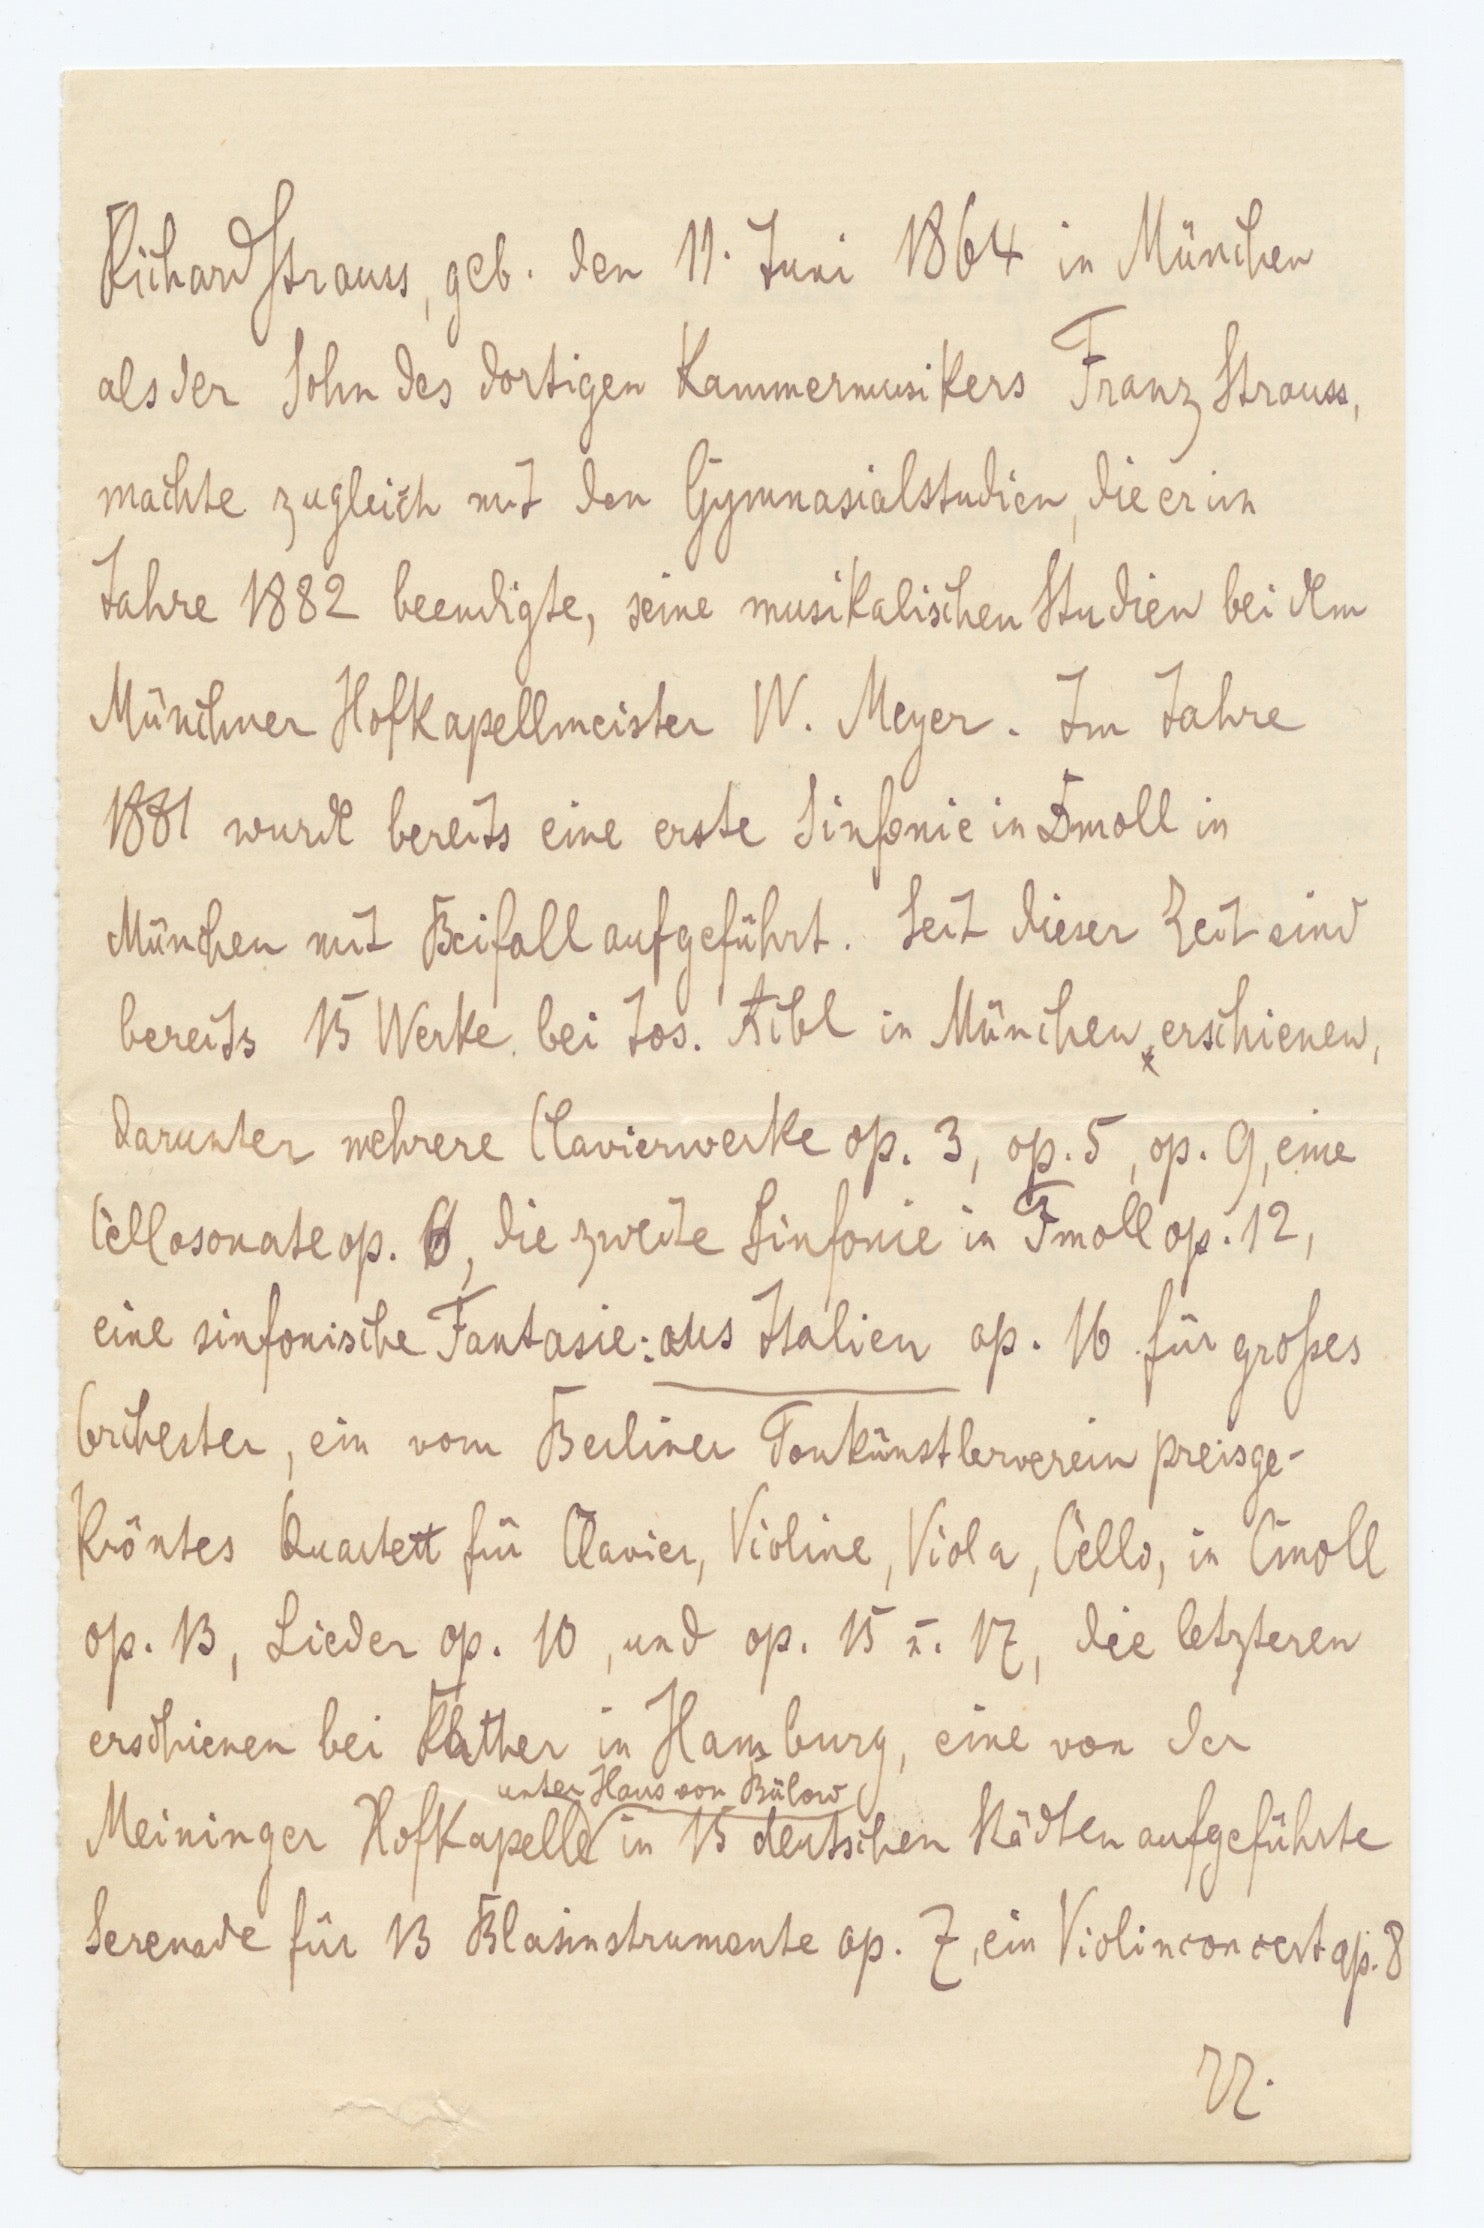 Richard Strauss, geb. den 11. Juni 1864 in München
als der Sohn des dortigen Kammermusikers Franz Strauss,
machte zugleich mit den Gymnasialstudien, die er im
Jahre 1882 beendigte, seine musikalischen Studien bei dem
Münchner Hofkapellmeister W. Meyer. Im Jahre
1881 wurde bereits eine erste Sinfonie in Dmoll in
München mit Beifall aufgeführt. Seit dieser Zeit sind
bereits 15 Werke bei Jos. Aibl in München erschienen,
darunter mehrere Clavierwerke op. 3, op. 5, op. 9, eine
Cellosonate op. 6, die zweite Sinfonie in Fmoll op. 12,
eine sinfonische Fantasie: aus Italien op. 16 für großes
Orchester, ein vom Berliner Tonkünstlerverein preisge-
kröntes Quartett für Clavier, Violine, Viola, Cello, in Cmoll
op. 13, Lieder op. 10, und op. 15 u. 17, die letzteren
erschienen bei Rather in Hamburg, eine von der
unter Hans von Bülow
Meininger Hofkapelle in 15 deutschen Städten aufgeführte
Serenade für 13 Blasinstrumente op. 7, ein Violinconcert op. 8